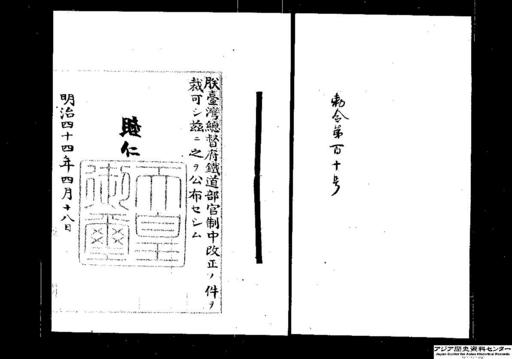 勅令第百十号
朕臺灣總督府鐵道部官制中改正ノ件ヲ
裁可シ茲ニ之ヲ公布セシム
睦仁
天皇
御璽
明治四十四年四月十八日
アジア歴史資料センター
Japan Center for Asian Historical Records